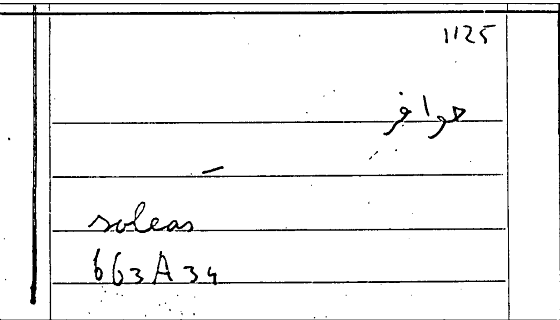 1125
حوافر
—
soleas
663A34